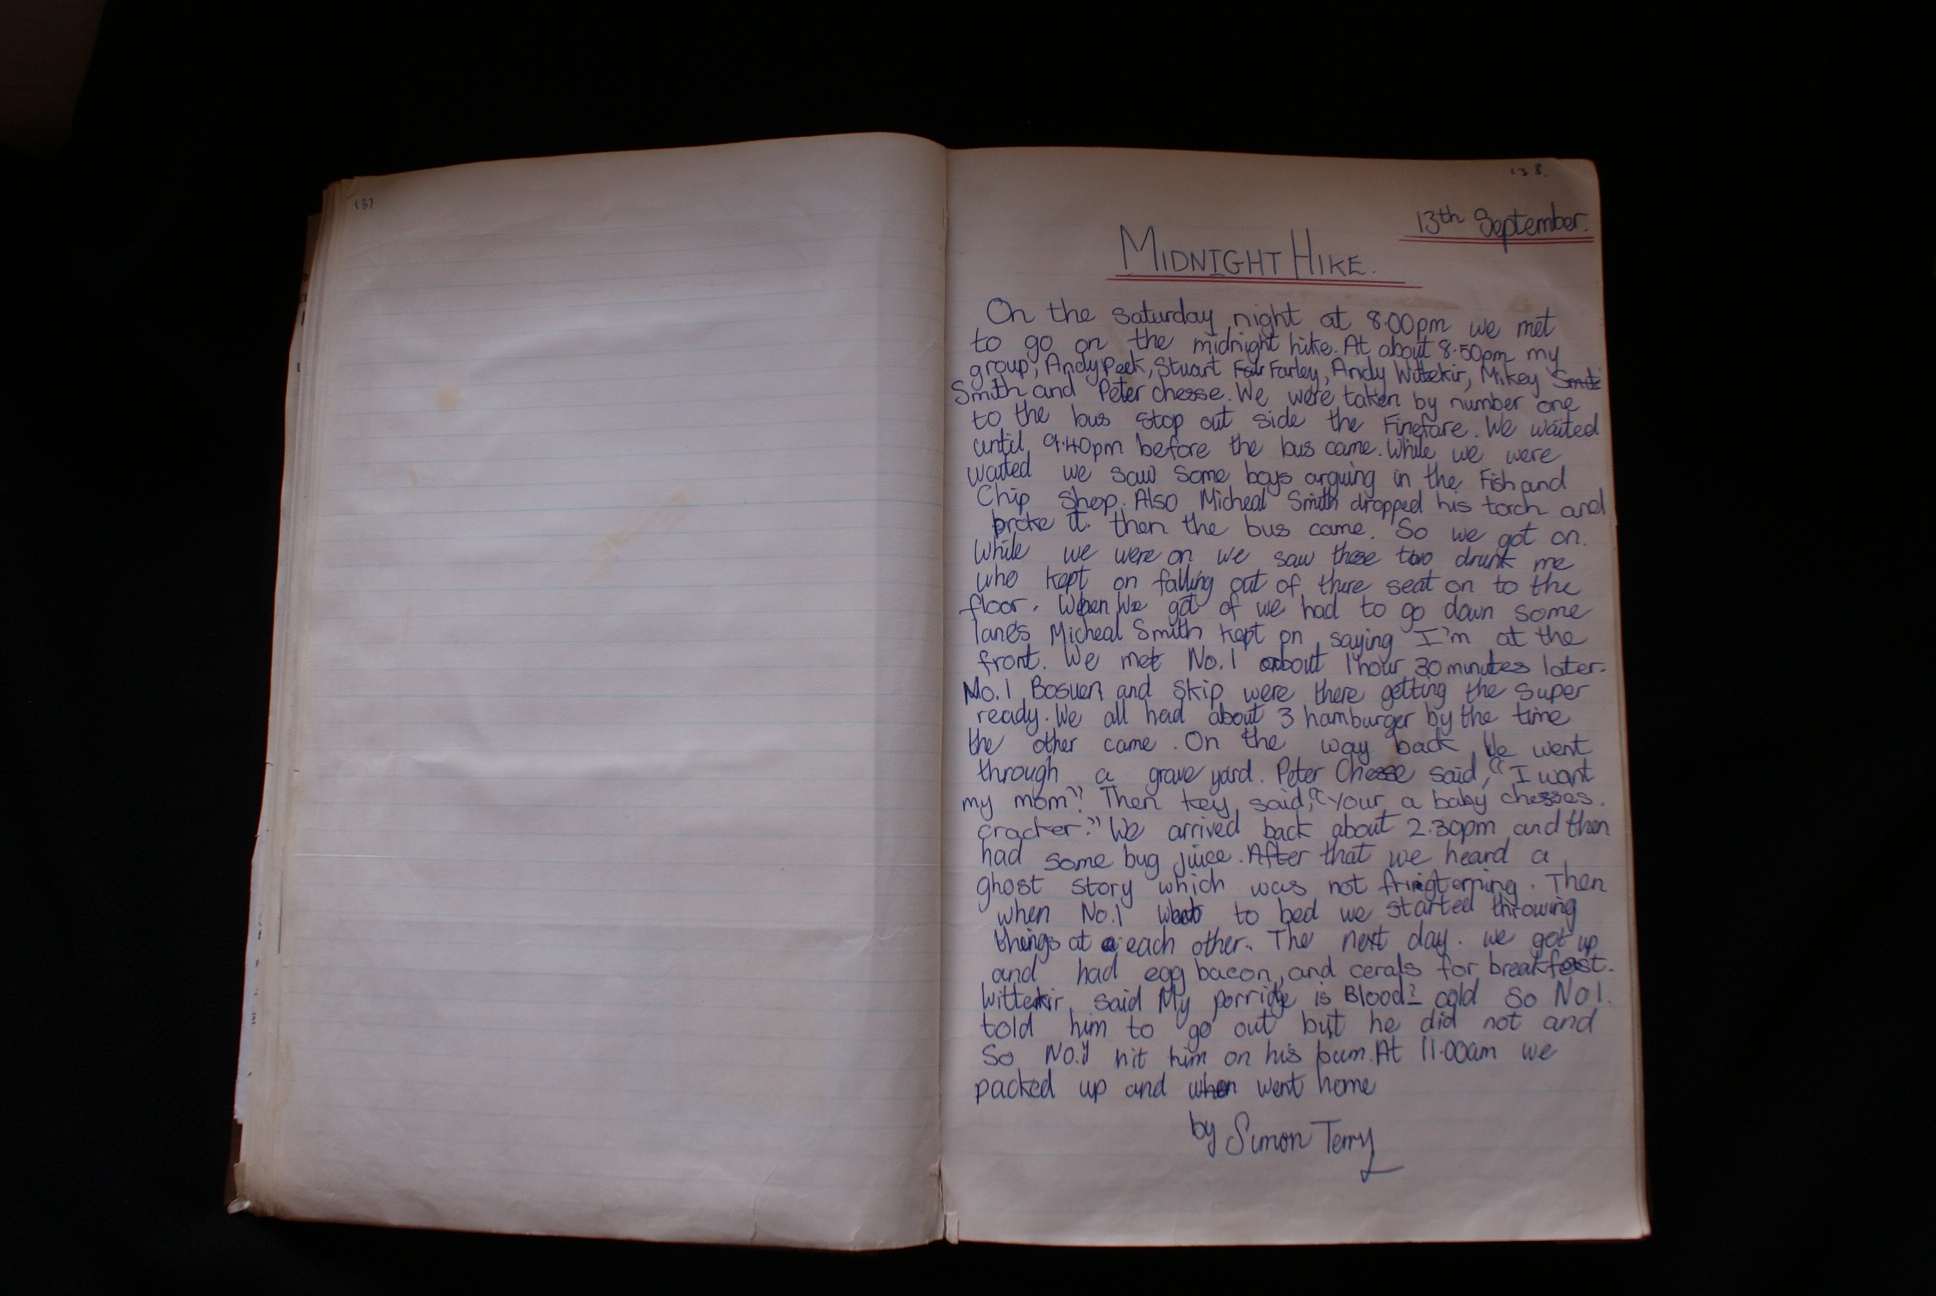 137
138.
13th September.
MIDNIGHT HIKE.
On the saturday night at 8.00pm we met
to go on the midnight hike. At about 8.50pm my
group, Andy Peek, Stuart Fair Farley, Andy Wittekir, Mikey Smite
Smith and Peter chesse. We were taken by number one
to the bus stop out side the Finefare. We waited
until 9.40pm before the bus came. While we were
waited we saw some boys arguing in the Fish and
Chip Shop. Also Micheal Smith dropped his torch and
broke it. then the bus came. So we got on.
While we were on we saw these two drunk me
who kept on falling out of there seat on to the
floor. When We got of we had to go down some
lanes Micheal Smith kept on saying I'm at the
front. We met No.1 about 1 hour 30 minutes later.
No.1 Bosuen and Skip were there getting the super
ready. We all had about 3 hamburger by the time
the other came. On the way back We went
through a grave yard. Peter Chesse said, "I want
my mom". Then key said, "your a baby chesses
cracker." We arrived back about 2.30pm and then
had some bug juice. After that we heard a
ghost story which was not fringterning. Then
when No.1 went to bed we started throwing
things at a each other. The next day. we got up
and had egg bacon, and cerals for breakfast.
Wittekir said My porridge is Blood? cold so No1.
told him to go out but he did not and
So No.1 hit him on his bum. At 11.00am we
packed up and when went home
by Simon Terry